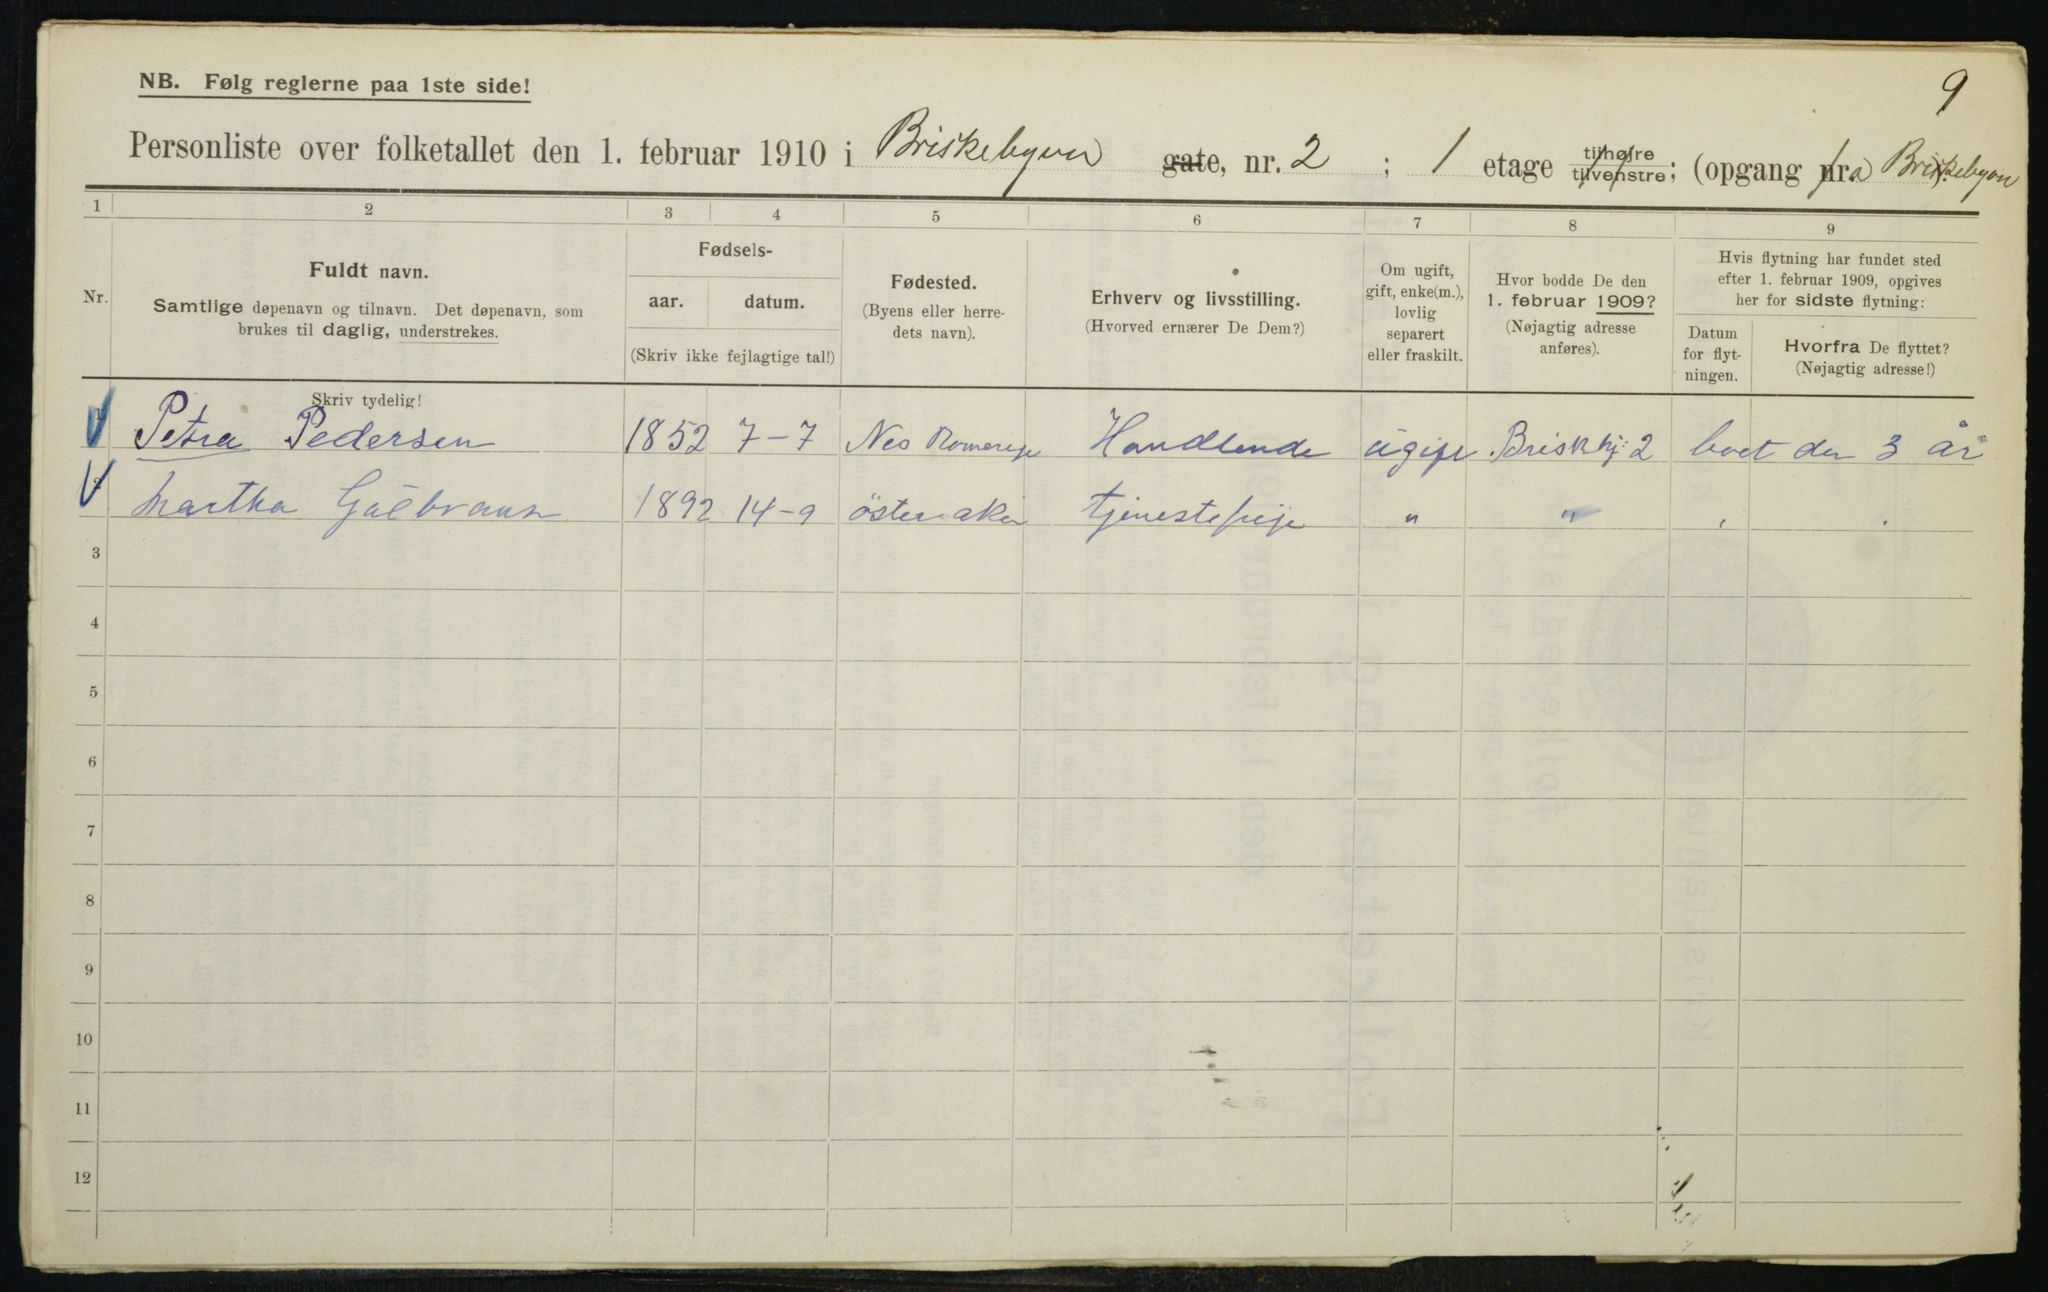 9
NB. Følg reglerne paa 1ste side!
Personliste over folketallet den 1. februar 1910 i Briskebyvn gate, nr. 2 ; 1 etage tilhøjre tilvenstre; (opgang fra Briskebyvn
1 2 3 4 5 6 7 8 9
Nr.
Fuldt navn.
Samtlige døpenavn og tilnavn. Det døpenavn, som
brukes til daglig, understrekes.
Skriv tydelig!
Fødsels-
aar. datum.
(Skriv ikke fejlagtige tal!)
Fødested.
(Byens eller herre-
dets navn).
Erhverv og livsstilling.
(Hvorved ernærer De Dem?)
Om ugift,
gift, enke(m.),
lovlig
separert
eller fraskilt.
Hvor bodde De den
1. februar 1909?
(Nøjagtig adresse
anføres).
Hvis flytning har fundet sted
efter 1. februar 1909, opgives
her for sidste flytning:
Datum
for flyt-
ningen.
Hvorfra De flyttet?
(Nøjagtig adresse!)
Petra Pedersen 1852 7-7 Nes Romerige Handlende ugift Briskbj: 2 boet der 3 år
Martha Gulbransen 1892 14-9 öster aker tjenestepige " "
3
4
5
6
7
8
9
10
11
12